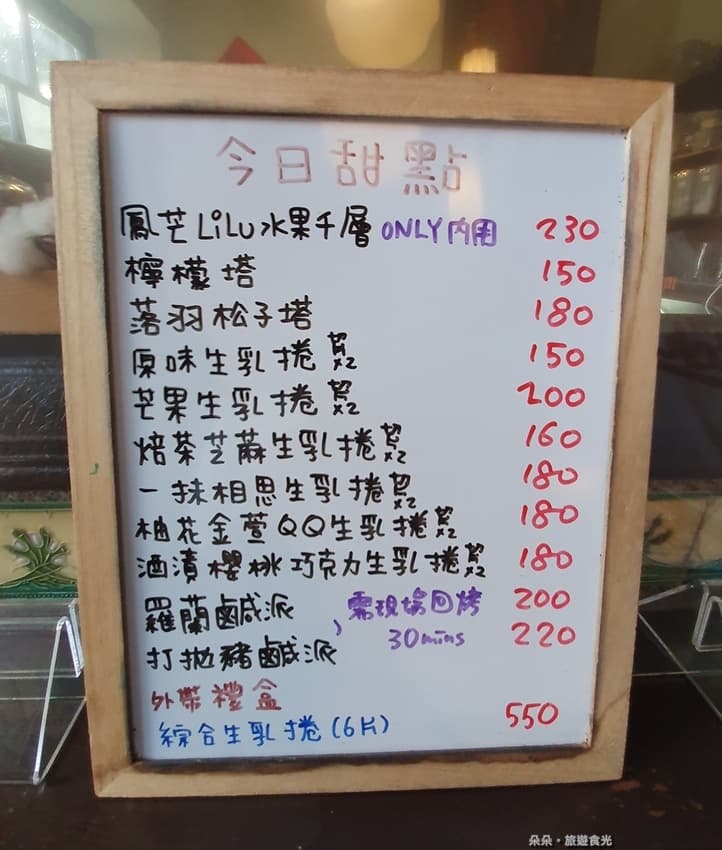 今日甜點
鳳芒LiLu水果千層 ONLY內用 230
檸檬塔 150
落羽松子塔 180
原味生乳捲 x2 150
芒果生乳捲 x2 200
焙茶芝麻生乳捲 x2 160
一抹相思生乳捲 x2 180
柚花金萱QQ生乳捲 x2 180
酒漬櫻桃巧克力生乳捲 x2 180
羅蘭鹹派 需現場回烤 200
打拋豬鹹派 30mins 220
外帶禮盒
綜合生乳捲(6片) 550
朵朵·旅遊食光